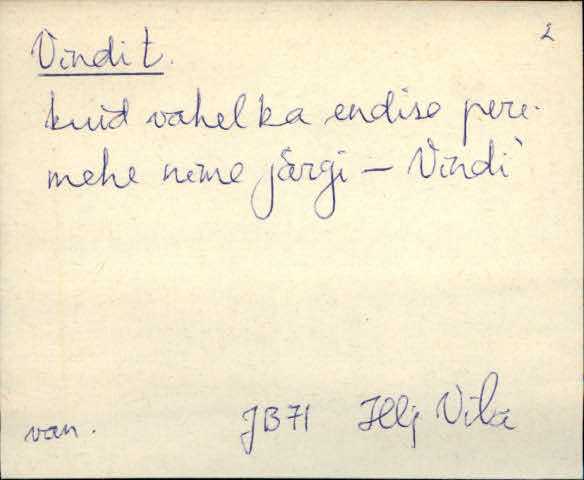 2
Vindi t.
kuid vahel ka endise pere-
mehe nime järgi – Vindi
van. JB71 Hlj Vila